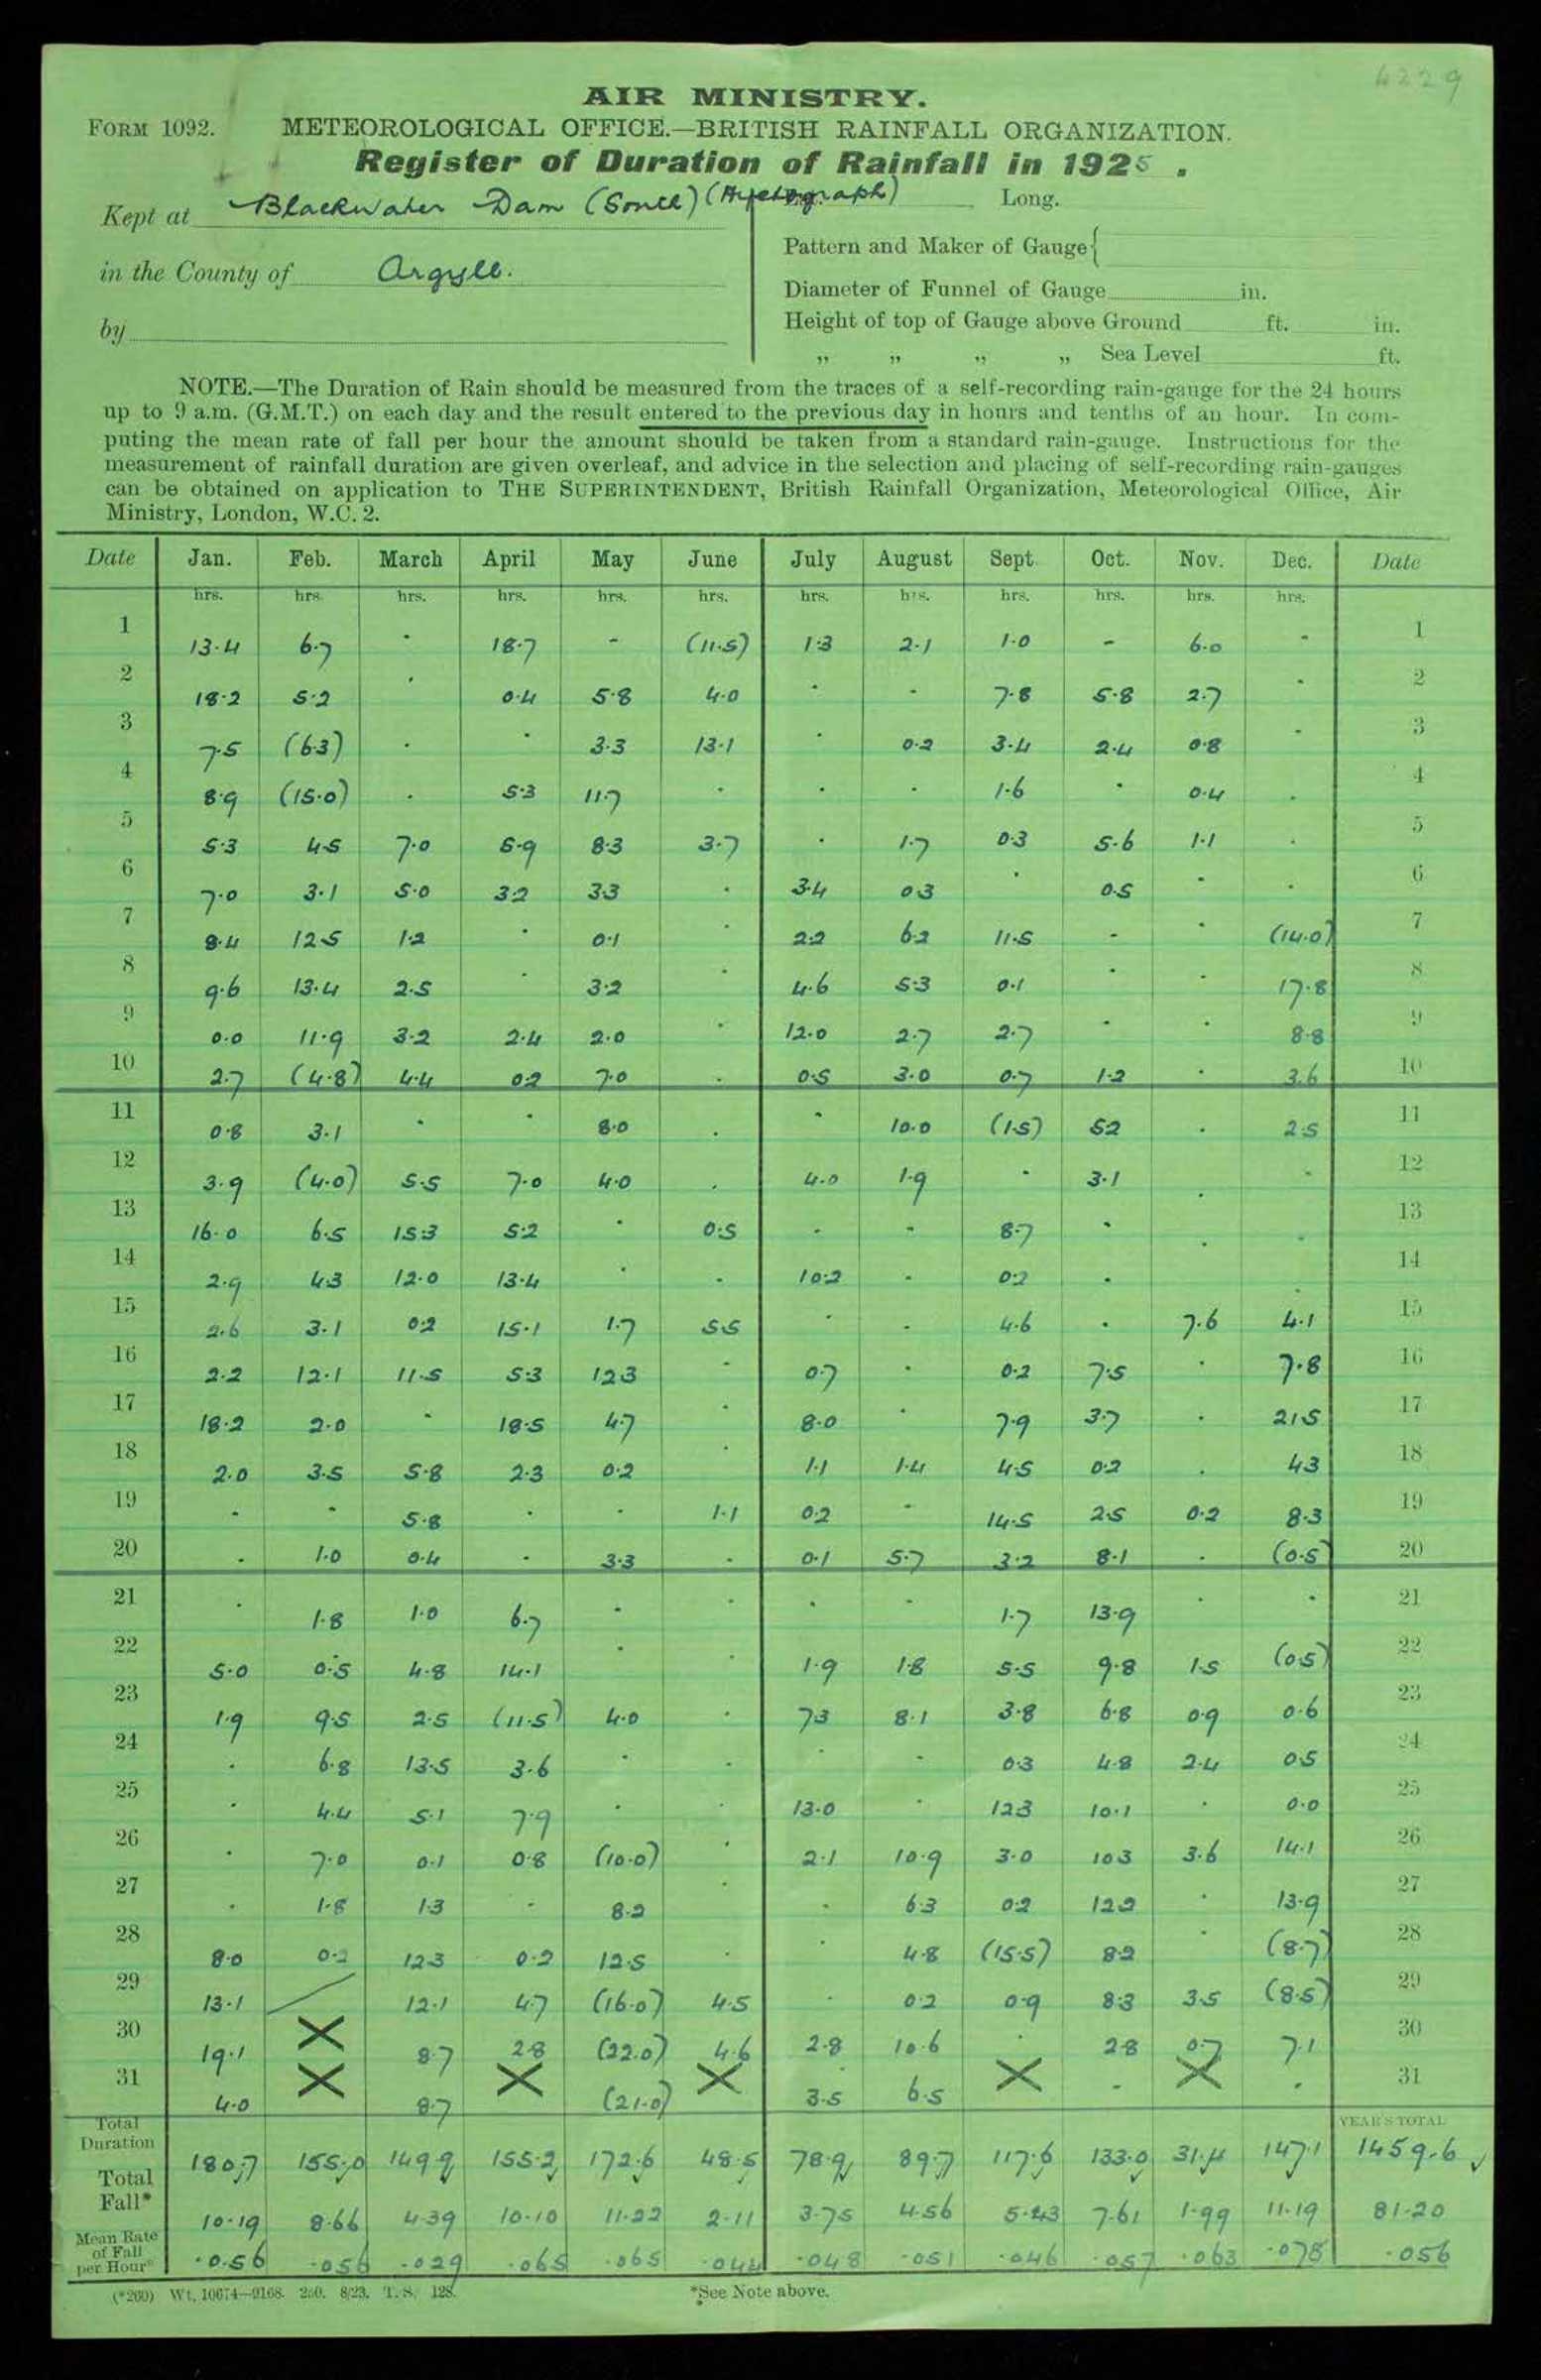 4229
AIR MINISTRY.
FORM 1092. METEOROLOGICAL OFFICE.—BRITISH RAINFALL ORGANIZATION.
Register of Duration of Rainfall in 1925 .
Kept at Blackwater Dam (Sonce) (Hyetograph) Long.
Pattern and Maker of Gauge {
in the County of Argyll.
Diameter of Funnel of Gauge in.
by
Height of top of Gauge above Ground ft. in.
„ „ „ „ Sea Level ft.
NOTE.—The Duration of Rain should be measured from the traces of a self-recording rain-gauge for the 24 hours
up to 9 a.m. (G.M.T.) on each day and the result entered to the previous day in hours and tenths of an hour. In com-
puting the mean rate of fall per hour the amount should be taken from a standard rain-gauge. Instructions for the
measurement of rainfall duration are given overleaf, and advice in the selection and placing of self-recording rain-gauges
can be obtained on application to THE SUPERINTENDENT, British Rainfall Organization, Meteorological Office, Air
Ministry, London, W.C. 2.
Date Jan. Feb. March April May June July August Sept. Oct. Nov. Dec. Date
hrs. hrs. hrs. hrs. hrs. hrs. hrs. hrs. hrs. hrs. hrs. hrs.
1 13.4 6.7 · 18.7 - (11.5) 1.3 2.1 1.0 - 6.0 - 1
2 18.2 5.2 · 0.4 5.8 4.0 · - 7.8 5.8 2.7 · 2
3 7.5 (6.3) · · 3.3 13.1 · 0.2 3.4 2.4 0.8 · 3
4 8.9 (15.0) · 5.3 11.7 · · · 1.6 · 0.4 · 4
5 5.3 4.5 7.0 5.9 8.3 3.7 · 1.7 0.3 5.6 1.1 · 5
6 7.0 3.1 5.0 3.2 3.3 · 3.4 0.3 · 0.5 · · 6
7 8.4 12.5 1.2 · 0.1 · 2.2 6.2 11.5 - · (14.0) 7
8 9.6 13.4 2.5 · 3.2 · 4.6 5.3 0.1 · · 17.8 8
9 0.0 11.9 3.2 2.4 2.0 · 12.0 2.7 2.7 · · 8.8 9
10 2.7 (4.8) 4.4 0.2 7.0 · 0.5 3.0 0.7 1.2 · 3.6 10
11 0.8 3.1 · · 8.0 · · 10.0 (1.5) 5.2 · 2.5 11
12 3.9 (4.0) 5.5 7.0 4.0 · 4.0 1.9 · 3.1 · · 12
13 16.0 6.5 15.3 5.2 · 0.5 · - 8.7 · · · 13
14 2.9 4.3 12.0 13.4 · · 10.2 · 0.2 · · 14
15 2.6 3.1 0.2 15.1 1.7 5.5 · · 4.6 · 7.6 4.1 15
16 2.2 12.1 11.5 5.3 12.3 · 0.7 · 0.2 7.5 · 7.8 16
17 18.2 2.0 · 18.5 4.7 · 8.0 · 7.9 3.7 · 21.5 17
18 2.0 3.5 5.8 2.3 0.2 · 1.1 1.4 4.5 0.2 · 4.3 18
19 · · 5.8 · · 1.1 0.2 - 14.5 2.5 0.2 8.3 19
20 · 1.0 0.4 · 3.3 · 0.1 5.7 3.2 8.1 · (0.5) 20
21 · 1.8 1.0 6.7 · · · · 1.7 13.9 · · 21
22 5.0 0.5 4.8 14.1 · · 1.9 1.8 5.5 9.8 1.5 (0.5) 22
23 1.9 9.5 2.5 (11.5) 4.0 · 7.3 8.1 3.8 6.8 0.9 0.6 23
24 · 6.8 13.5 3.6 · · · · 0.3 4.8 2.4 0.5 24
25 · 4.4 5.1 7.9 · · 13.0 · 12.3 10.1 · 0.0 25
26 · 7.0 0.1 0.8 (10.0) · 2.1 10.9 3.0 10.3 3.6 14.1 26
27 · 1.8 1.3 · 8.2 · · 6.3 0.2 12.2 · 13.9 27
28 8.0 0.2 12.3 0.2 12.5 · · 4.8 (15.5) 8.2 · (8.7) 28
29 13.1 12.1 4.7 (16.0) 4.5 · 0.2 0.9 8.3 3.5 (8.5) 29
30 19.1 X 8.7 2.8 (22.0) 4.6 2.8 10.6 · 2.8 0.7 7.1 30
31 4.0 X 8.7 X (21.0) X 3.5 6.5 X - X · 31
YEAR'S TOTAL
Total Duration 180.7 155.0 149.9 155.2 172.6 48.5 78.9 89.7 117.6 133.0 31.4 147.1 1459.6 ✓
Total Fall* 10.19 8.66 4.39 10.10 11.22 2.11 3.75 4.56 5.43 7.61 1.99 11.19 81.20
Mean Rate of Fall per Hour* .056 .056 .029 .065 .065 .044 .048 .051 .046 .057 .063 .078 .056
(*260) Wt. 10674—9168. 250. 8/23. T.S. 128. *See Note above.